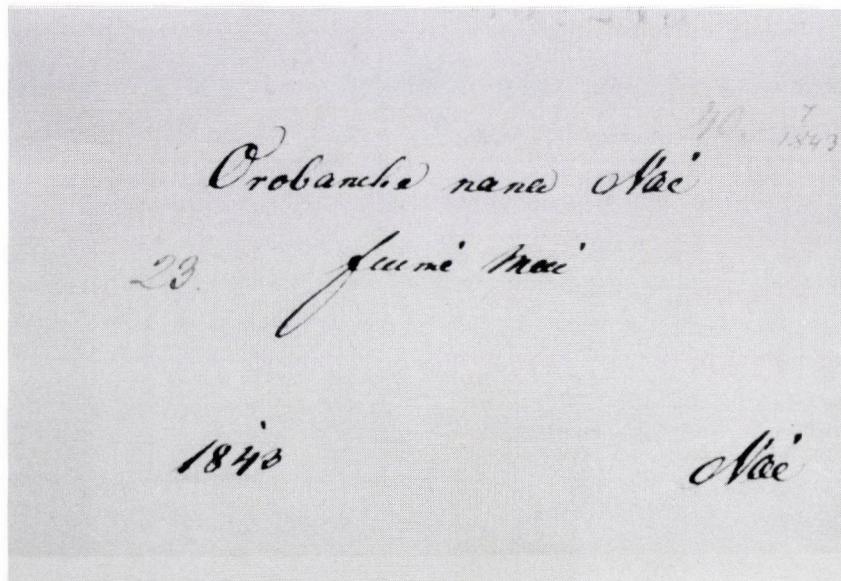 40. 7
1843
Orobanche nana Noé
23. fiume Mai
1843 Noé